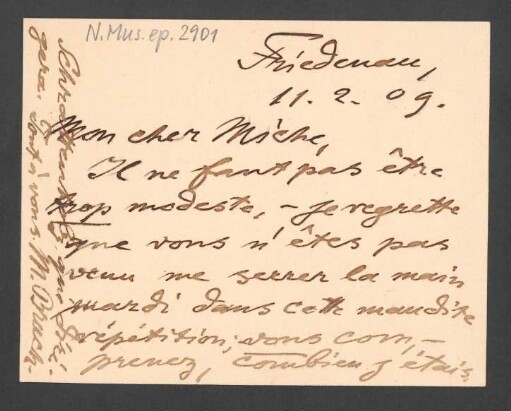 N. Mus. ep. 2901
Friedenau,
11. 2. 09.
Mon cher Miche,
Il ne faut pas être
trop modeste, – je regrette
que vous n'êtes pas
venu me serrer la main
mardi dans cette maudite
répétition; vous com,–
prenez, combien j'étais
gera.
tout à vous M. Bruch.